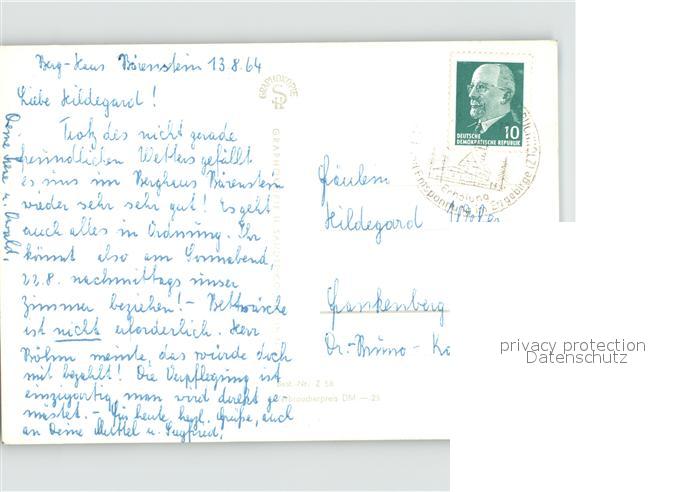 Berg-Haus Bärenstein 13.8.64
Liebe Hildegard!
Trotz des nicht gerade
freundlichen Wetters gefällt
es uns im Berghaus Bärenstein
wieder sehr sehr gut! Es geht
auch alles in Ordnung. Ihr
könnt also am Sonnabend,
22.8. nachmittags unser
Zimmer beziehen! - Bettwäsche
ist nicht erforderlich. Herr
Böhm meinte, das würde doch
mit bezahlt! Die Verpflegung ist
einzigartig, man wird direkt ge-
mästet. - Für heute herzl. Grüße, auch
an Deine Muttel u. Siegfried,
Deine u. Ewald.
GRAPHOKOPIE
Best.-Nr. Z 58
Verbraucherpreis DM — 25
10
DEUTSCHE
DEMOKRATISCHE REPUBLIK
Erholung
Entspannung
Erzgebirge
Fräulein
Hildegard
Frankenberg
Dr.-Bruno-
privacy protection
Datenschutz